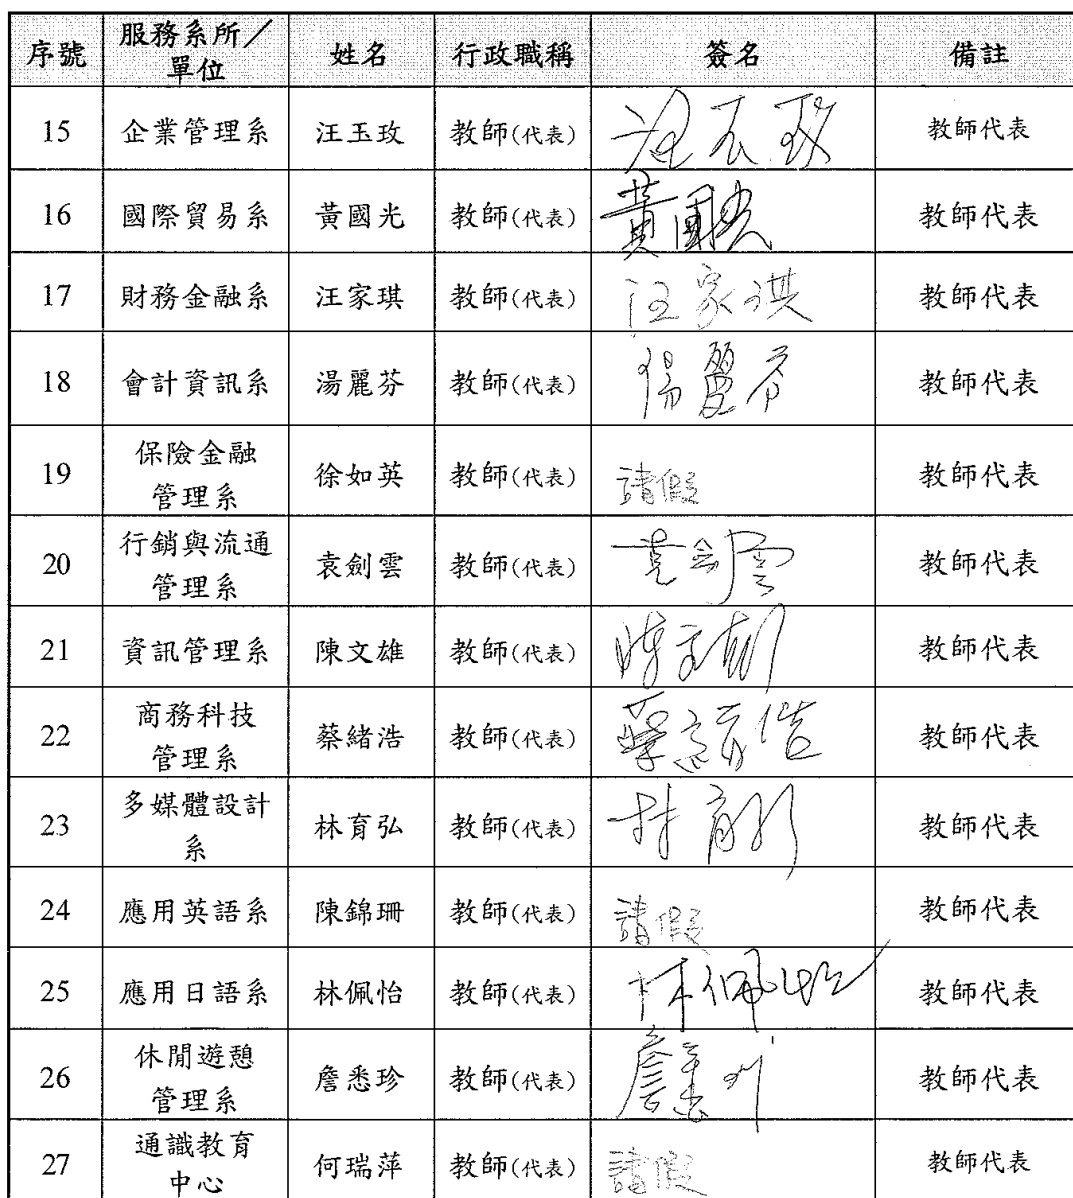 序號 服務系所／單位 姓名 行政職稱 簽名 備註
15 企業管理系 汪玉玫 教師(代表) 汪玉玫 教師代表
16 國際貿易系 黃國光 教師(代表) 黃國光 教師代表
17 財務金融系 汪家琪 教師(代表) 汪家琪 教師代表
18 會計資訊系 湯麗芬 教師(代表) 湯麗芬 教師代表
19 保險金融管理系 徐如英 教師(代表) 請假 教師代表
20 行銷與流通管理系 袁劍雲 教師(代表) 袁劍雲 教師代表
21 資訊管理系 陳文雄 教師(代表) 陳文雄 教師代表
22 商務科技管理系 蔡緒浩 教師(代表) 蔡緒浩 教師代表
23 多媒體設計系 林育弘 教師(代表) 林育弘 教師代表
24 應用英語系 陳錦珊 教師(代表) 請假 教師代表
25 應用日語系 林佩怡 教師(代表) 林佩怡 教師代表
26 休閒遊憩管理系 詹悉珍 教師(代表) 詹悉珍 教師代表
27 通識教育中心 何瑞萍 教師(代表) 請假 教師代表